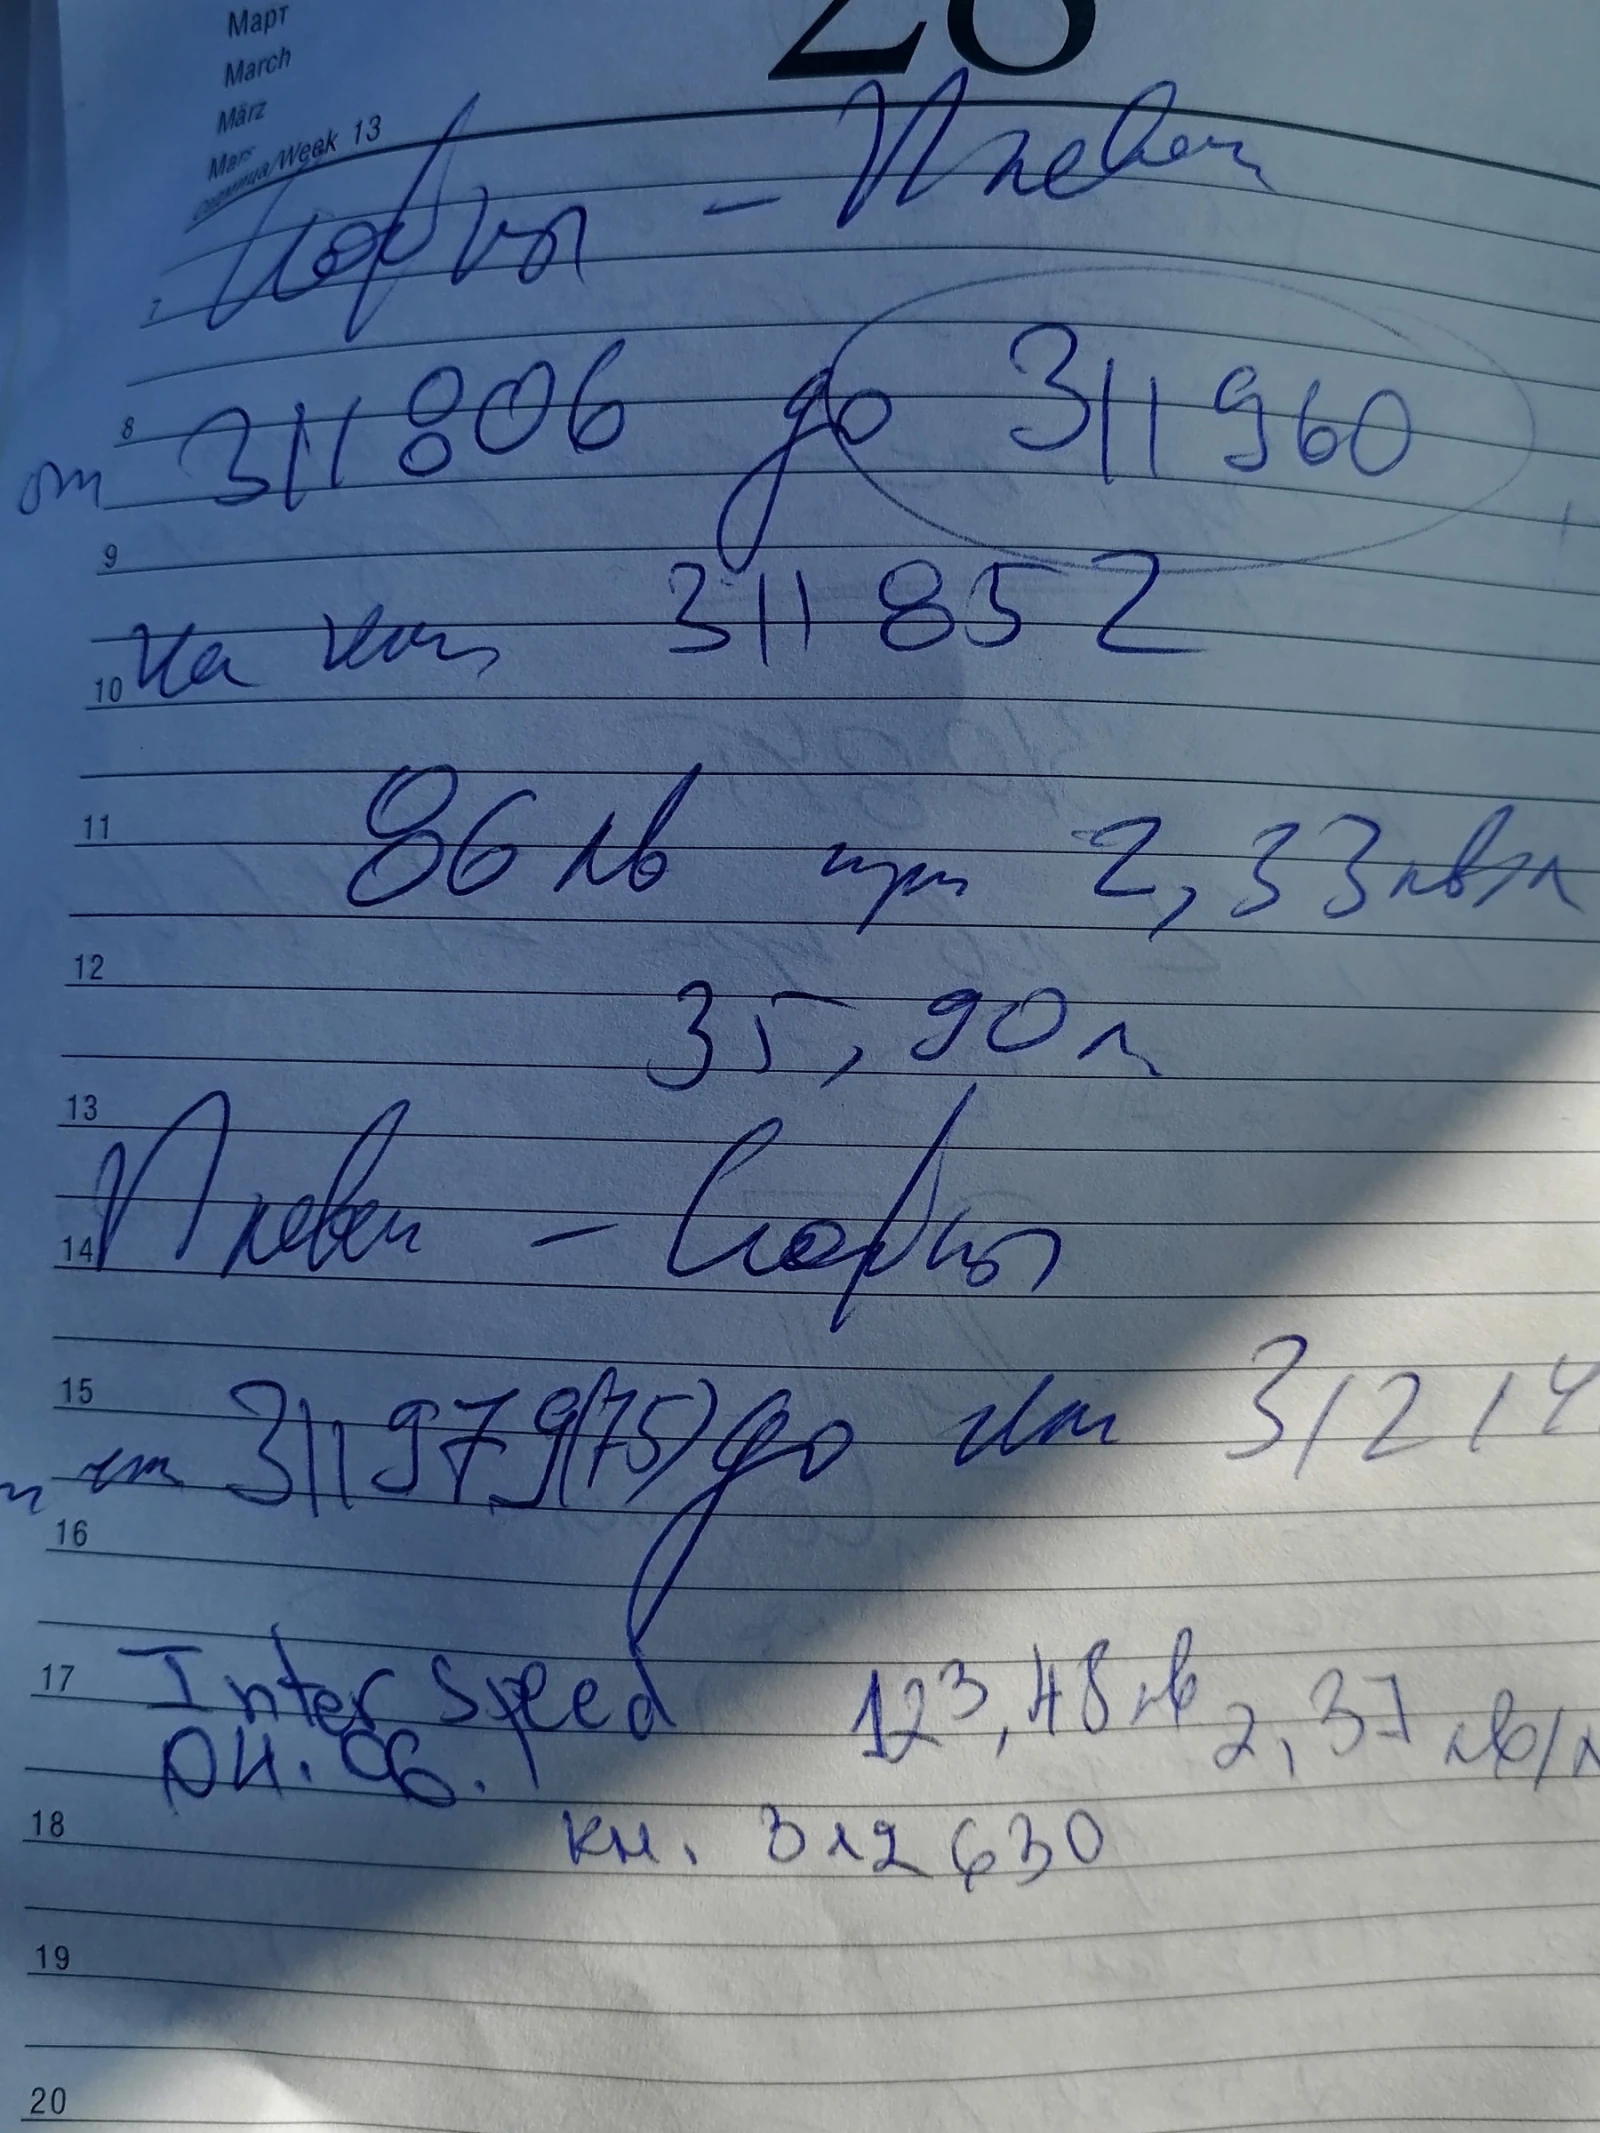 Март
March
März
Mars
Седмица/Week 13
28
София – Плевен
7
8
от 311806 до 311960
9
на км 311852
10
11
86 лв при 2,33 лв/л
12
35,90 л
13
Плевен – София
14
15
от 311979(75) до км 31214
16
17
Inter Speed 123,48 лв 2,37 лв/л
04.06.
18
км. 312630
19
20